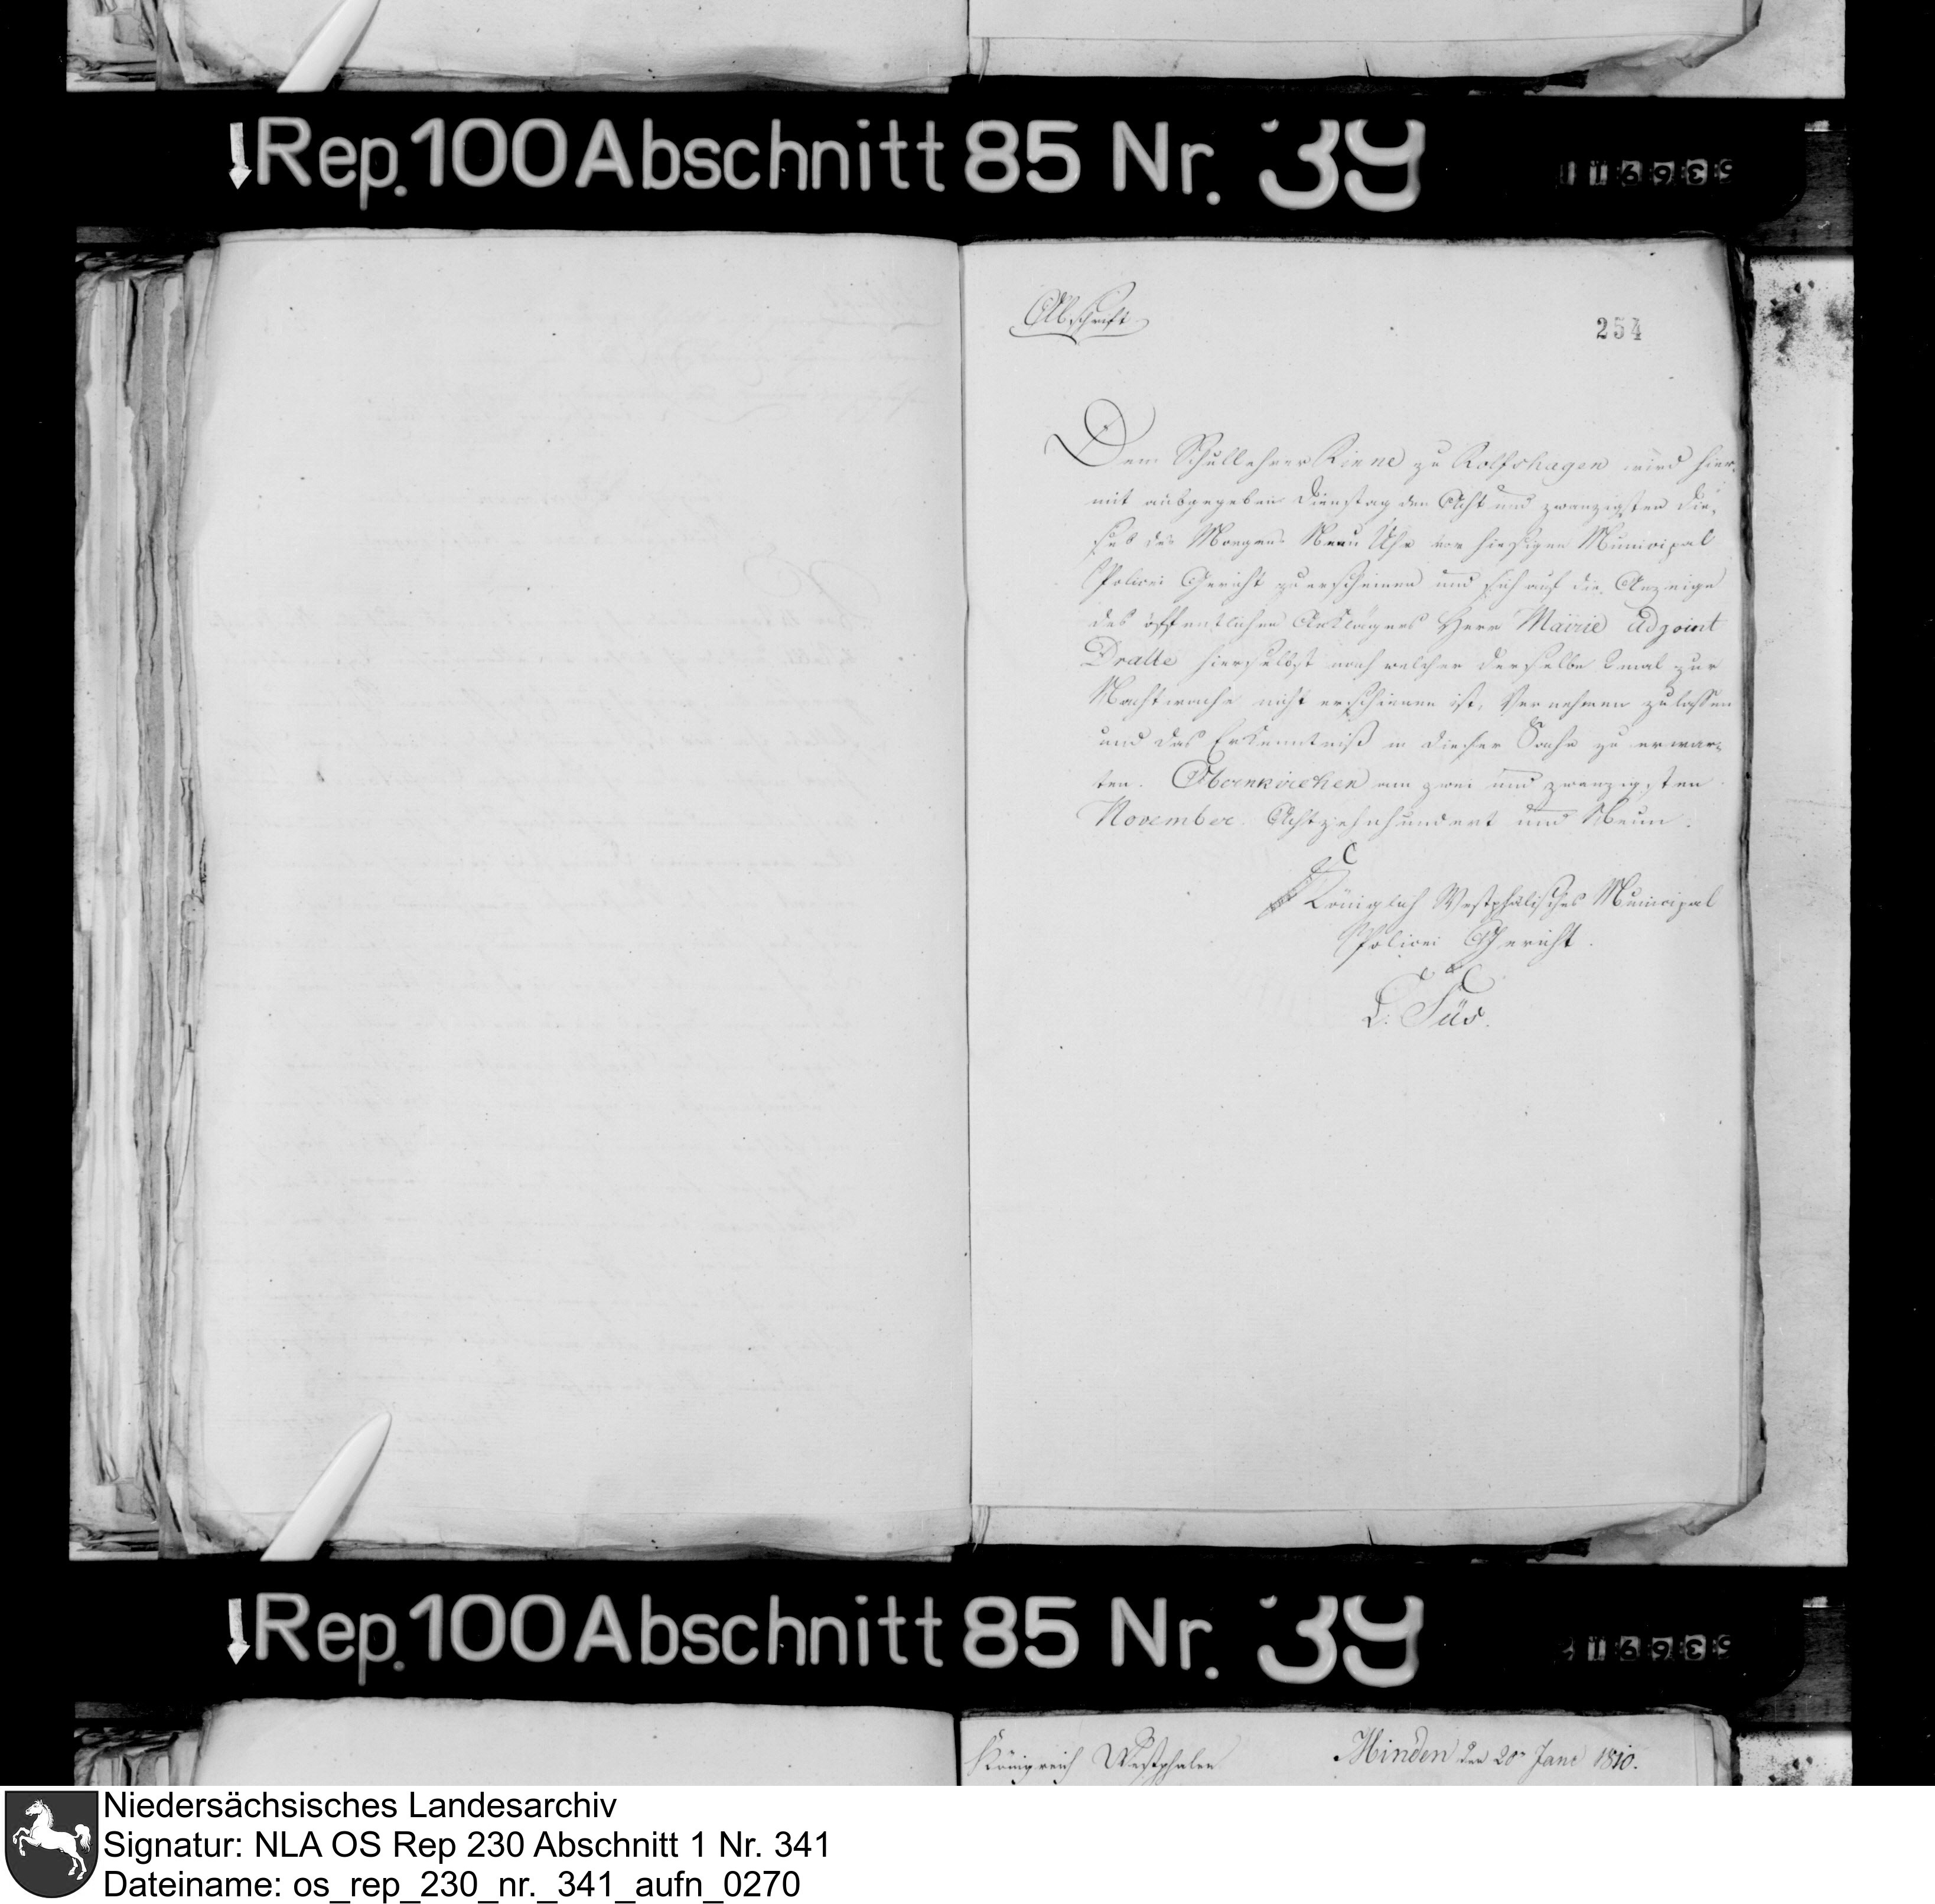 Rep. 100 Abschnitt 85 Nr. 39
Abschrift
254
Dem Schullehrer Rinne zu Rolfshagen wird hier-
mit aufgegeben Dienstag den Acht und zwanzigsten die-
ses des Morgens Neun Uhr vor hiesigen Municipal
Policei Gericht zu erscheinen und sich auf die Anzeige
des öffentlichen Anklägers Herr Mairie Adjoint
Dralle hierselbst nach welcher derselbe 2 mal zur
Nachtwache nicht erschienen ist, Vernehmen zu lassen
und das Erkenntniß in dieser Sache zu erwar-
ten. Obernkirchen am zwei und zwanzigsten
November Achtzehnhundert und Neun.
Königlich Westphälisches Municipal
Policei Gericht.
C. Süs.
Rep. 100 Abschnitt 85 Nr. 39
Königreich Westphalen
Minden den 20n Janr 1810.
Niedersächsisches Landesarchiv
Signatur: NLA OS Rep 230 Abschnitt 1 Nr. 341
Dateiname: os_rep_230_nr._341_aufn_0270